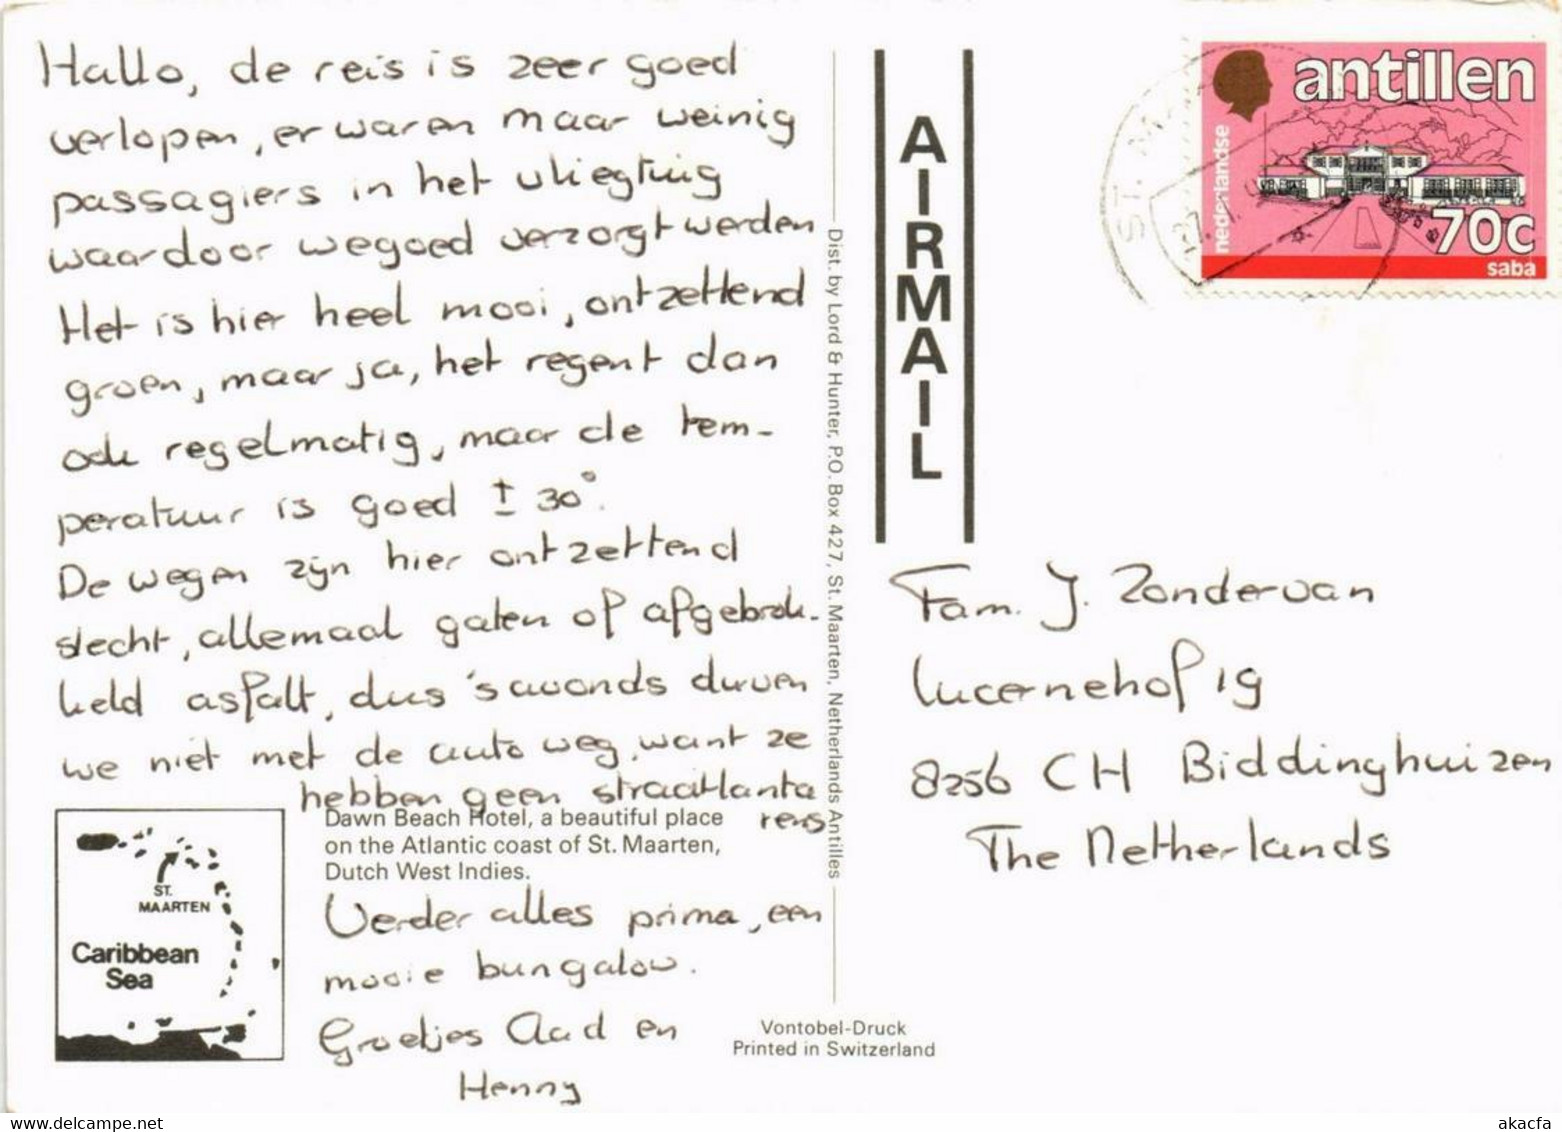 Hallo, de reis is zeer goed
verlopen, er waren maar weinig
passagiers in het vliegtuig
waardoor we goed verzorgt werden
Het is hier heel mooi, ontzettend
groen, maar ja, het regent dan
ook regelmatig, maar de tem-
peratuur is goed ± 30°.
De wegen zijn hier ontzettend
slecht, allemaal gaten of afgebrok-
keld asfalt, dus 's avonds durven
we niet met de auto weg, want ze
hebben geen straatlanta
rens
Dawn Beach Hotel, a beautiful place
on the Atlantic coast of St. Maarten,
Dutch West Indies.
Verder alles prima, een
mooie bungalow.
Groetjes Aad en
Henny
ST.
MAARTEN
Caribbean
Sea
Dist. by Lord & Hunter, P.O. Box 427, St. Maarten, Netherlands Antilles
Vontobel-Druck
Printed in Switzerland
AIRMAIL
ST. MA
nederlandse
antillen
70c
saba
Fam. J. Zondervan
Lucernehof 19
8256 CH Biddinghuizen
The Netherlands
www.delcampe.net
akacfa